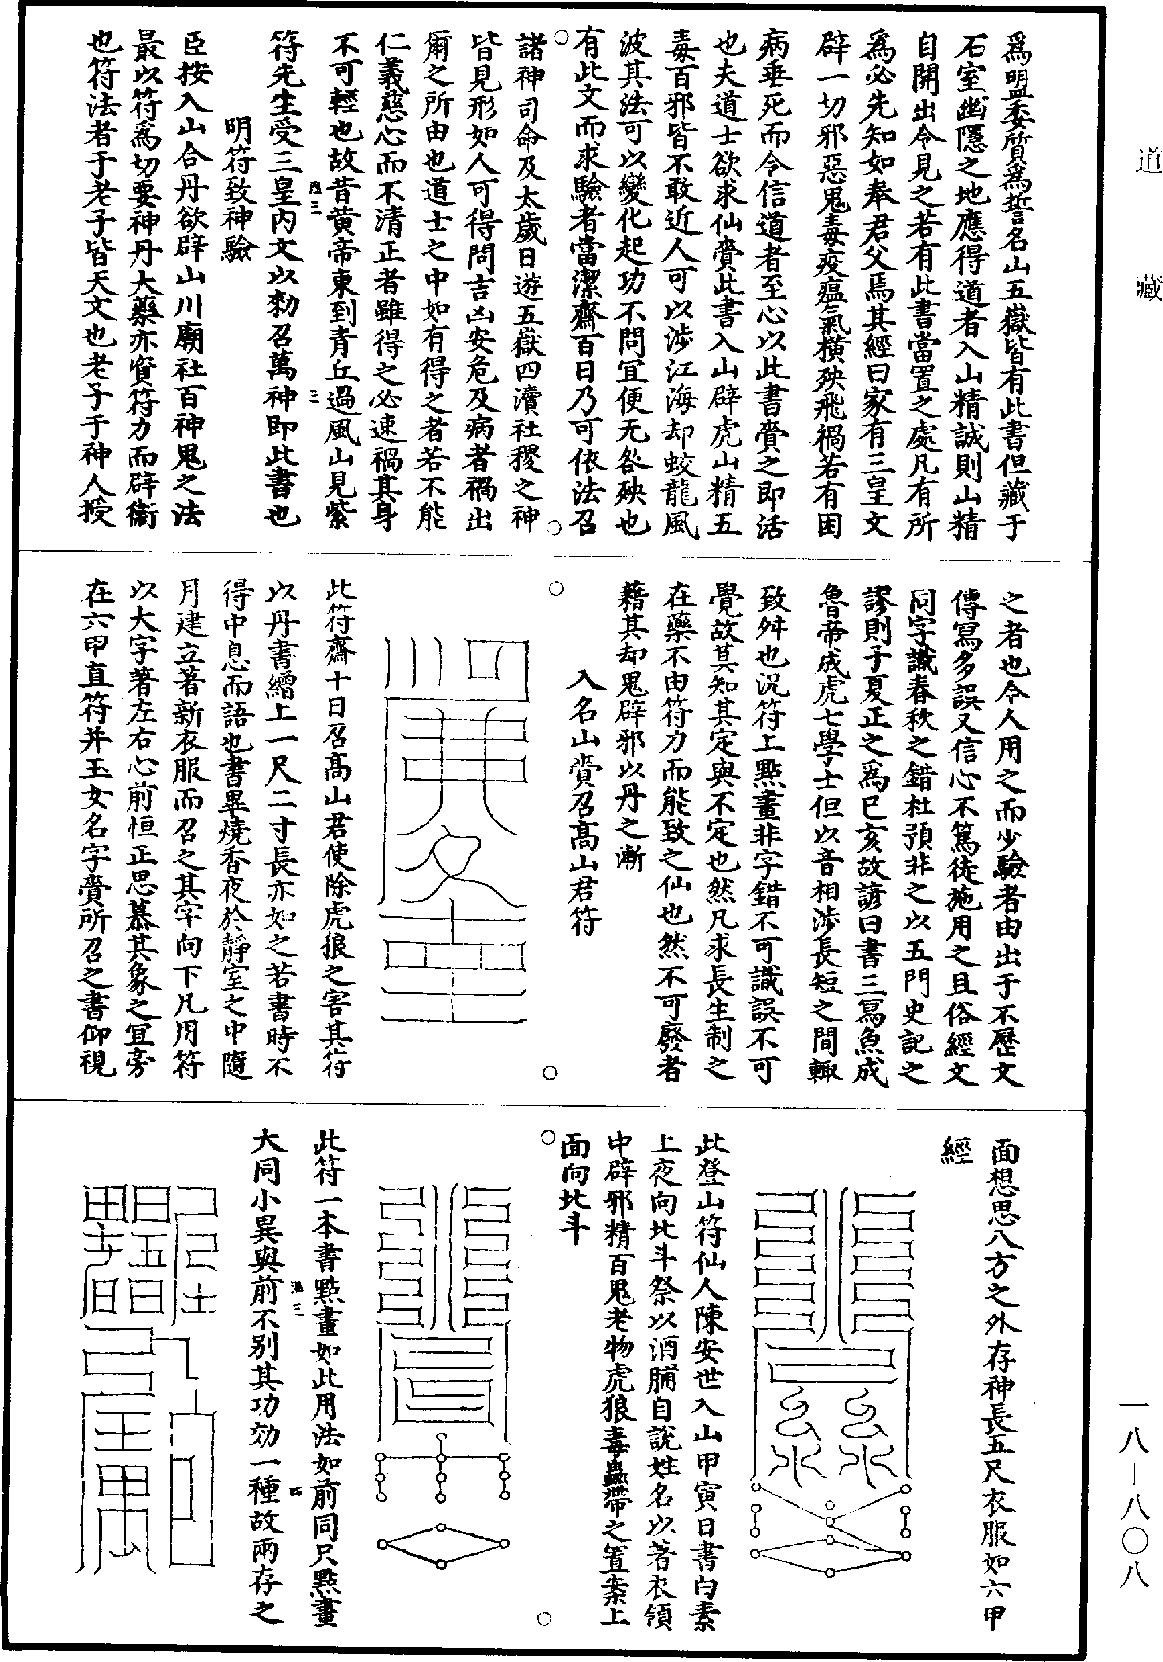 道藏
一八—八〇八
爲盟委質爲誓名山五嶽皆有此書但藏于
石室幽隱之地應得道者入山精誠則山精
自開出令見之若有此書當置之處凡有所
爲必先知如奉君父焉其經曰家有三皇文
辟一切邪惡鬼毒疫瘟氣橫殃飛禍若有困
病垂死而令信道者至心以此書賫之即活
也夫道士欲求仙賫此書入山辟虎山精五
毒百邪皆不敢近人可以涉江海却蛟龍風
波其法可以變化起功不問宜便无咎殃也
有此文而求驗者當潔齋百日乃可依法召
諸神司命及太歲日遊五嶽四瀆社稷之神
皆見形如人可得問吉凶安危及病者禍出
爾之所由也道士之中如有得之者若不能
仁義慈心而不清正者雖得之必速禍其身
不可輕也故昔黄帝東到青丘過風山見紫
符先生受三皇内文以劾召萬神即此書也
明符致神驗
臣按入山合丹欲辟山川廟社百神鬼之法
最以符爲切要神丹大藥亦資符力而辟衛
也符法者于老子皆天文也老子于神人授
之者也今人用之而少驗者由出于不歷文
傳冩多誤又信心不篤徒施用之且俗經文
同字識春秋之錯杜預非之以五門史記之
謬則子夏正之爲已亥故諺曰書三冩魚成
魯帝成虎七學士但以音相涉長短之間輙
致舛也況符上㸃畫非字錯不可識誤不可
覺故其知其定與不定也然凡求長生制之
在藥不由符力而能致之仙也然不可廢者
藉其却鬼辟邪以丹之漸
入名山賫召高山君符
此符齋十日召高山君使除虎狼之害其符
以丹書繒上一尺二寸長亦如之若書時不
得中息而語也書畢燒香夜於靜室之中隨
月建立著新衣服而召之其字向下凡用符
以大字著左右心前恒正思慕其象之宜旁
在六甲直符并玉女名字賫所召之書仰視
面想思八方之外存神長五尺衣服如六甲
經
此登山符仙人陳安世入山甲寅日書白素
上夜向北斗祭以酒脯自説姓名以著衣領
中辟邪精百鬼老物虎狼毒蟲帶之置案上
面向北斗
此符一本書㸃畫如此用法如前同只㸃畫
大同小異與前不别其功効一種故兩存之